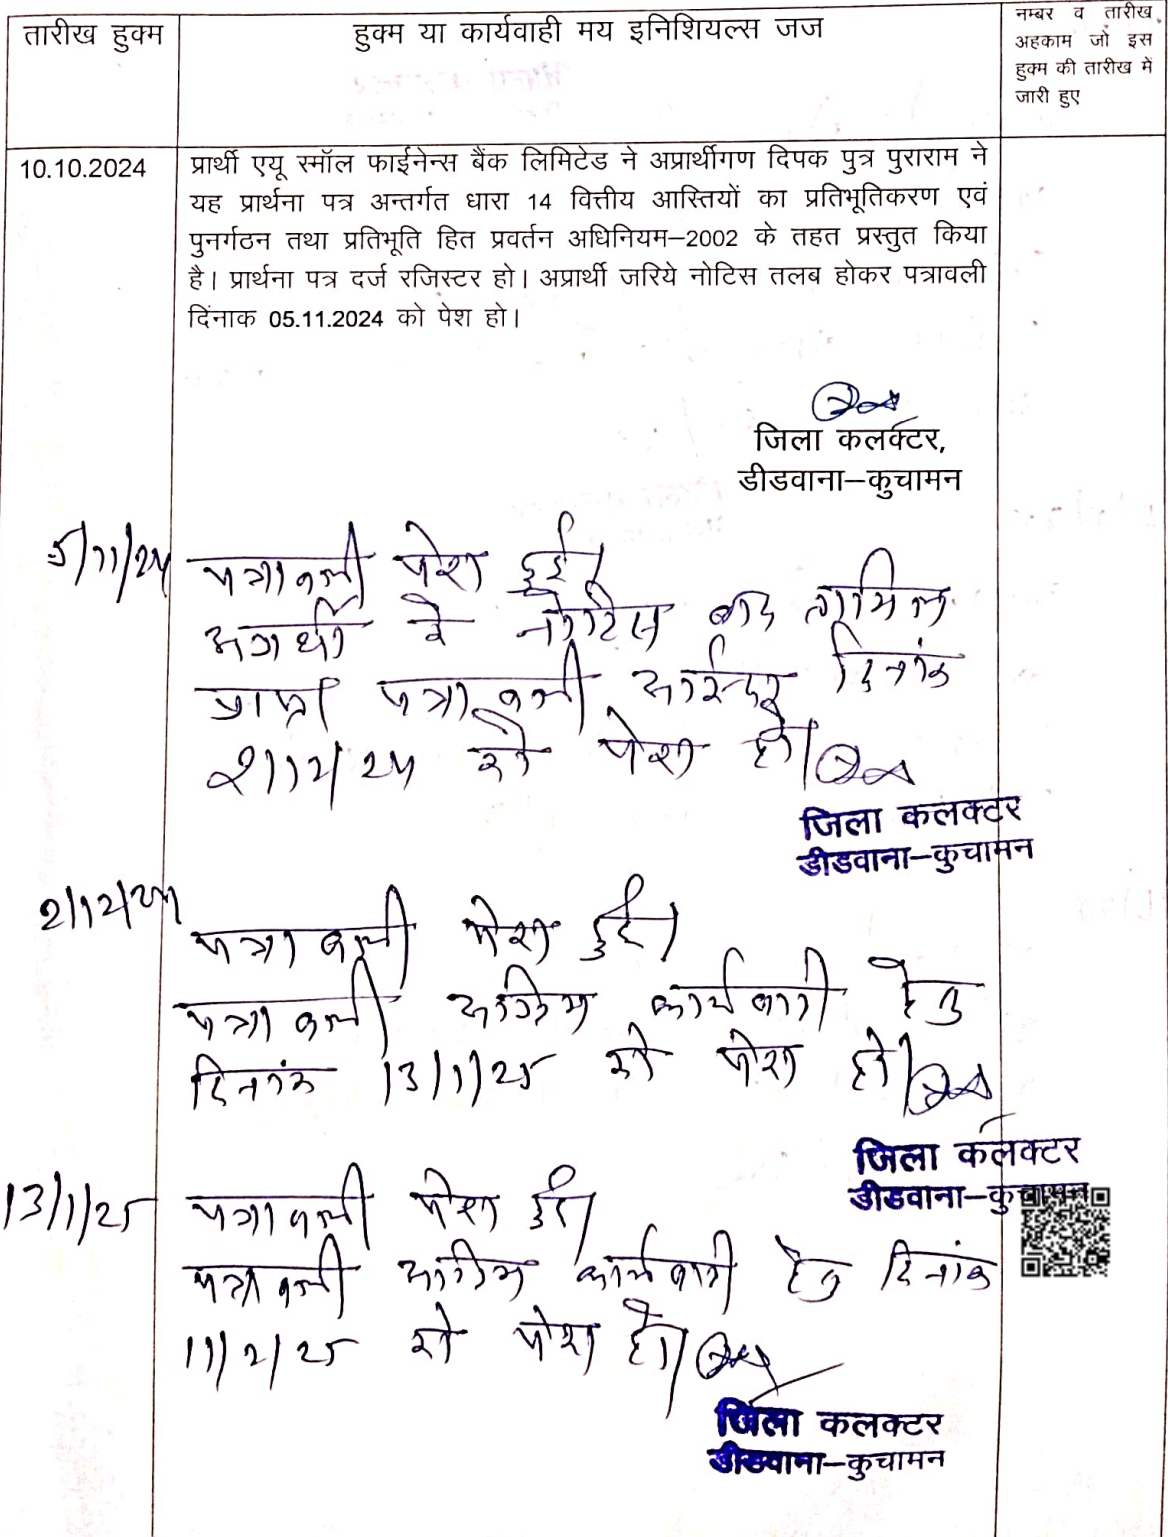 तारीख हुक्म
हुक्म या कार्यवाही मय इनिशियल्स जज
नम्बर व तारीख
अहकाम जो इस
हुक्म की तारीख में
जारी हुए
10.10.2024
प्रार्थी एयू स्मॉल फाईनेन्स बैंक लिमिटेड ने अप्रार्थीगण दिपक पुत्र पुराराम ने
यह प्रार्थना पत्र अन्तर्गत धारा 14 वित्तीय आस्तियों का प्रतिभूतिकरण एवं
पुनर्गठन तथा प्रतिभूति हित प्रवर्तन अधिनियम–2002 के तहत प्रस्तुत किया
है। प्रार्थना पत्र दर्ज रजिस्टर हो। अप्रार्थी जरिये नोटिस तलब होकर पत्रावली
दिंनाक 05.11.2024 को पेश हो।
जिला कलर्क्टर,
डीडवाना–कुचामन
5/11/24
पत्रावली पेश हुई।
के नोटिस बाद तामिल
पत्रावली दिनांक
2/12/24 को पेश हो।
जिला कलक्टर
डीडवाना–कुचामन
2/12/24
पत्रावली पेश हुई।
पत्रावली अग्रिम कार्यवाही हेतु
दिनांक 13/1/25 को पेश हो।
जिला कलक्टर
डीडवाना–कुचामन
13/1/25
पत्रावली पेश हुई।
पत्रावली अग्रिम कार्यवाही हेतु दिनांक
11/2/25 को पेश हो।
जिला कलक्टर
डीडवाना–कुचामन